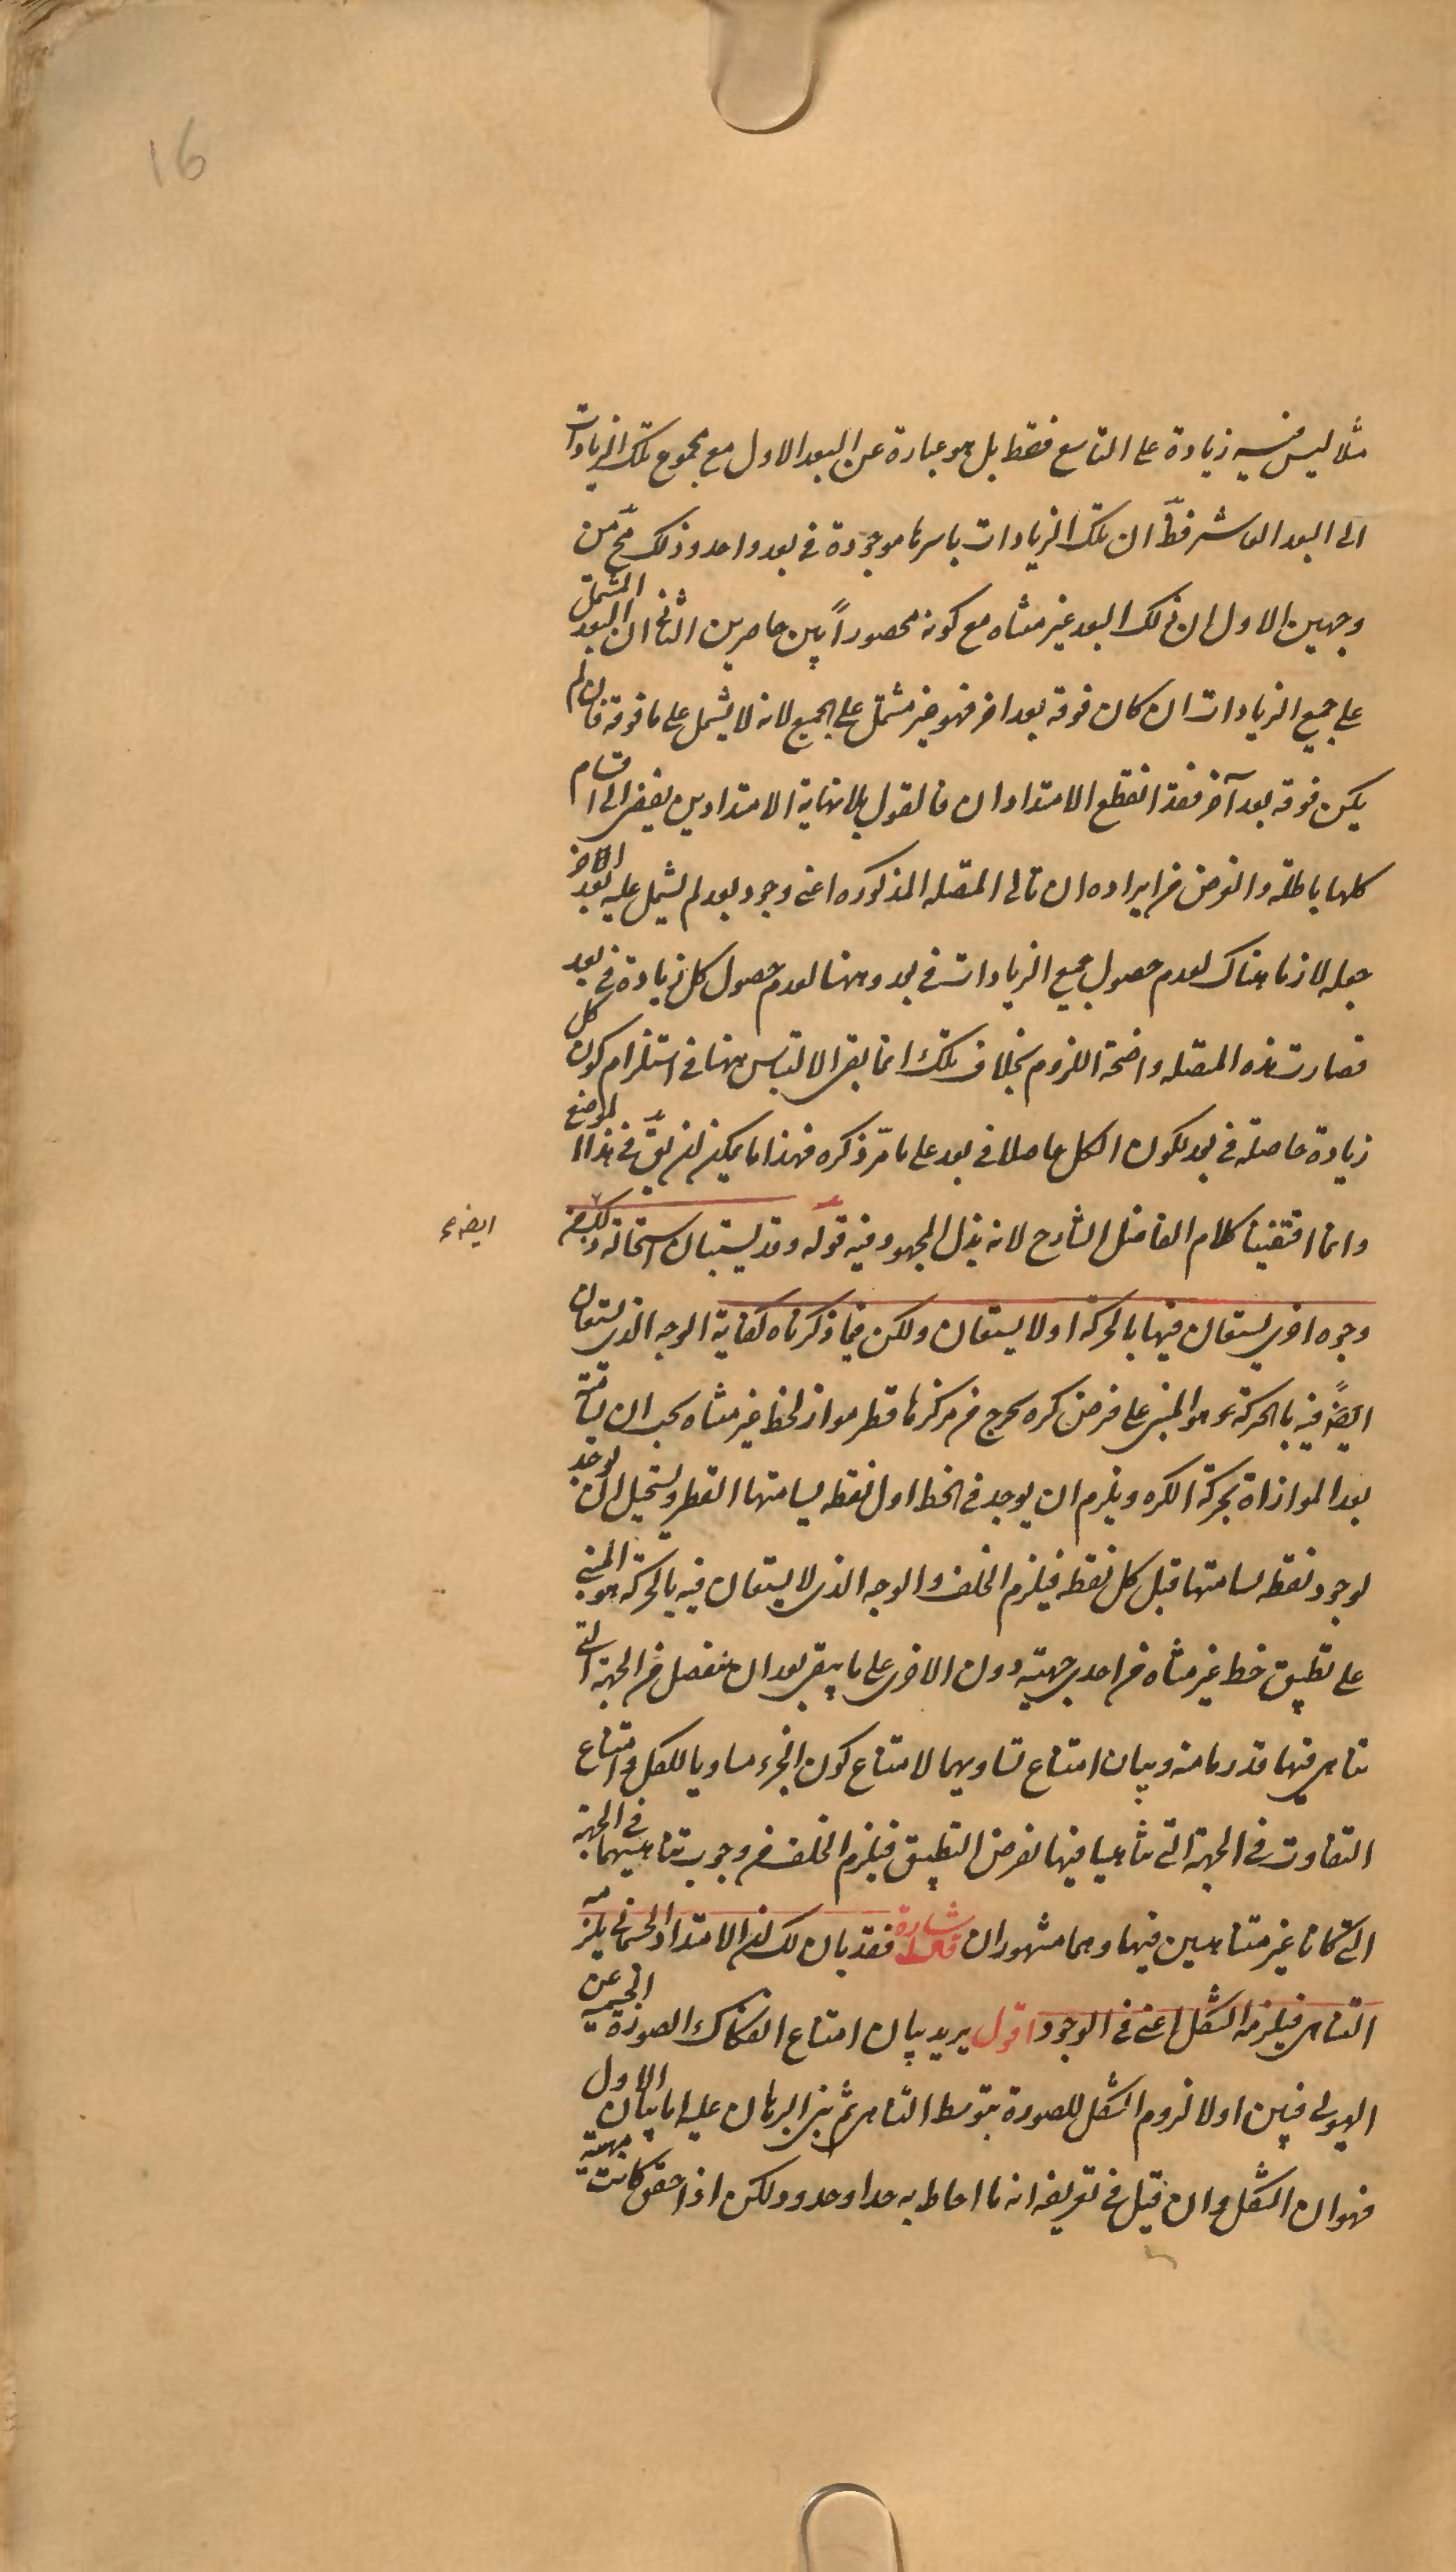 16
مثلا ليس فيه زيادة على التاسع فقط بل هو عبارة عن البعد الاول مع مجموع تلك الزيادات
الى البعد العاشر فظ ان تلك الزيادات باسرها موجودة في بعد واحد وذلك مح من
وجهين الاول ان ذلك البعد غير متناه مع كونه محصوراً بين حاصرين الثاني ان البعد المشتمل
على جميع الزيادات ان كان فوقه بعد اخر فهو غير مشتمل على الجميع لانه لا يشتمل على ما فوقه فان لم
يكن فوقه بعد آخر فقد انقطع الامتدادان فالقول بلا نهاية الامتدادين يفضى الى اقسام
كلها باطلة والغرض من ايراده ان تالى المتصله المذكوره اعنى وجود بعد لم يشتمل عليه بعد الاخر
جعله لازما هناك لعدم حصول جميع الزيادات في بعد وههنا لعدم حصول كل زيادة في بعد
فصارت هذه المتصله واضحة اللزوم بخلاف تلك انما بقى الالتباس ههنا في استلزام كون كل
زيادة حاصلة في بعد لكون الكل حاصلا في بعد على ما مرّ ذكره فهذا ما يمكن ان يق في هذا الموضع
وانما اقتفينا كلام الفاضل الشارح لانه بذل المجهود فيه قوله وقد يستبان استحالة ذلك من
ايضا
وجوه اخرى يستعان فيها بالحركة او لا يستعان ولكن فيما ذكرناه كفاية الوجه الذى يستعان
ايضاً فيه بالحركة هو المبنى على فرض كره يخرج من مركزها قطر مواز لخط غير متناه يجب ان يسامته
بعد الموازاة بحركة الكره ويلزم ان يوجد في الخط اول نقطه يسامتها القطر ويستحيل ان يوجد
لوجود نقطه يسامتها قبل كل نقطه فيلزم الخلف والوجه الذى لا يستعان فيه بالحركة هو المبنى
على تطبيق خط غير متناه من احدى جهتيه دون الاخرى على ما يبقى بعد ان ينفصل من الجهة التى
تناهى فيها قدر ما منه وبيان امتناع تساويهما لامتناع كون الجزء مساويا للكل وامتناع
التفاوت في الجهة التى تناهيا فيها لفرض التطبيق فيلزم الخلف من وجوب تناهيهما في الجهة
التى كانا غير متناهيين فيها وهما مشهوران اشارة قال فقد بان لك ان الامتداد الجسمانى يلزمه
التناهى فيلزمه الشكل اعنى في الوجود اقول يريد بيان امتناع انفكاك الصورة الجسمية عن
الهيولى فبين اولا لزوم الشكل للصورة بتوسط التناهى ثم بنى البرهان عليه اما بيان الاول
فهو ان الشكل وان قيل في تعريفه انه ما احاط به حد او حدود ولكن اذا حقق كانت مهية